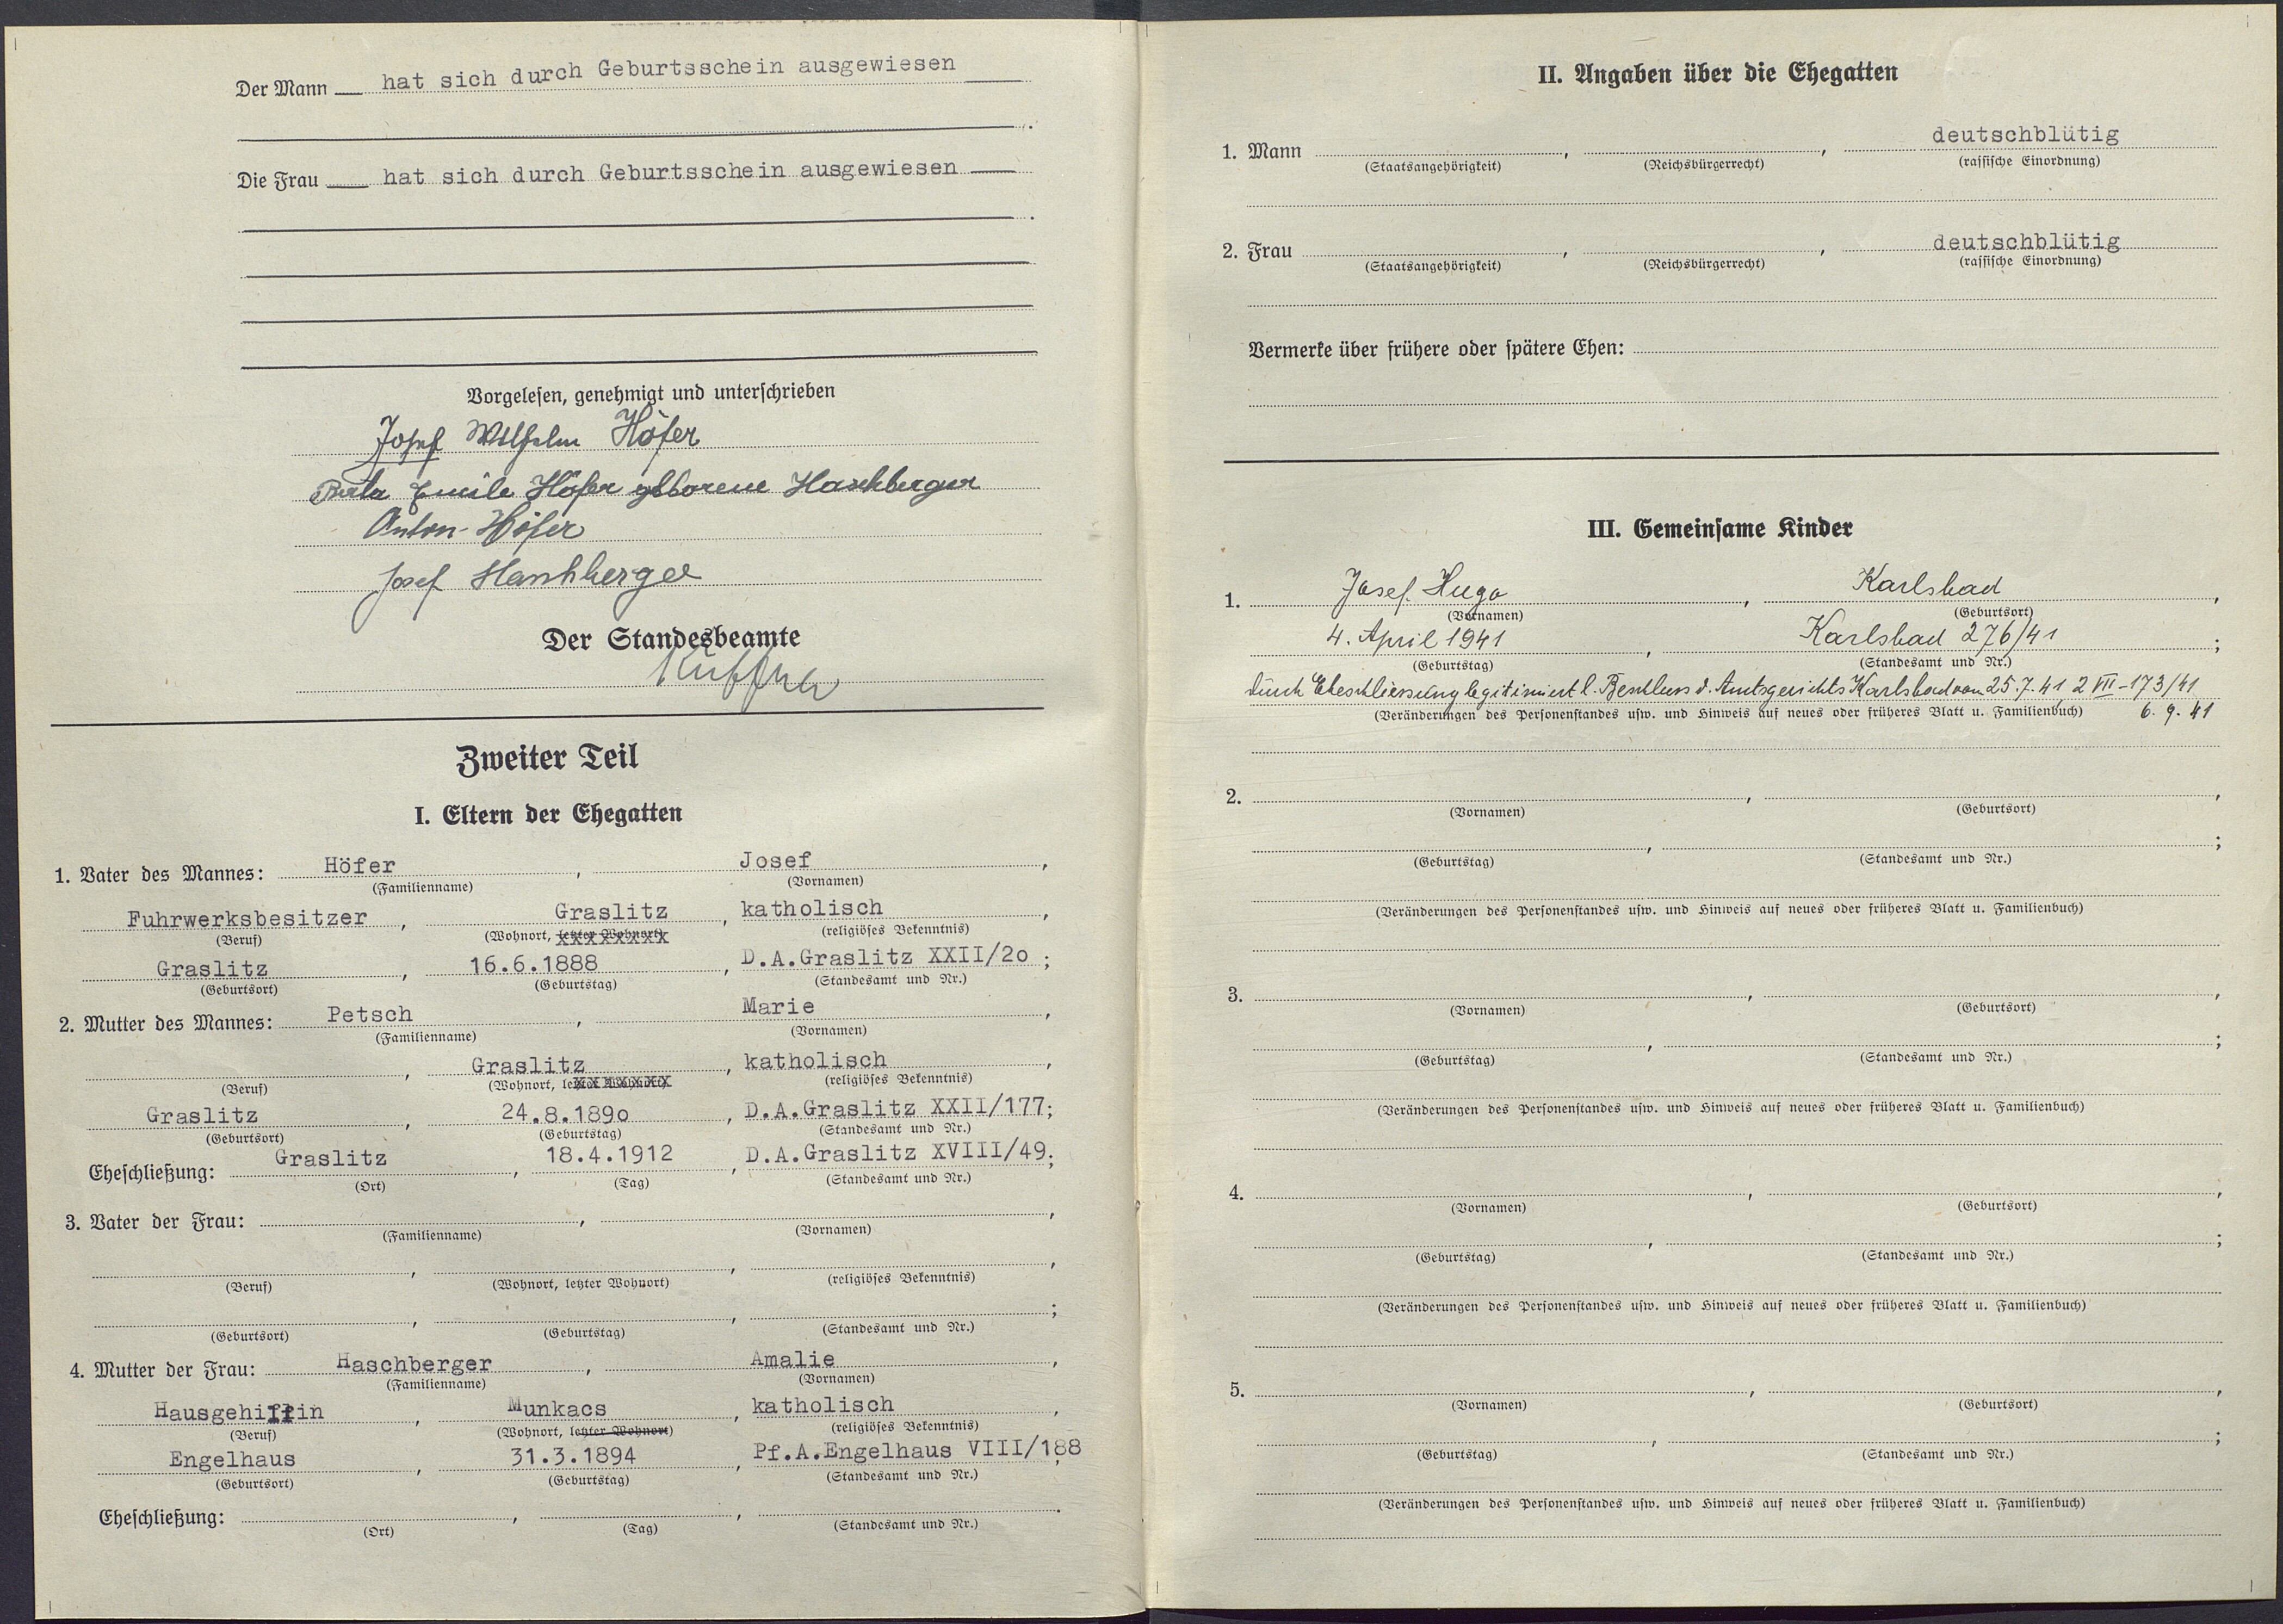 Der Mann hat sich durch Geburtsschein ausgewiesen
Die Frau hat sich durch Geburtsschein ausgewiesen
Vorgelesen, genehmigt und unterschrieben
Josef Wilhelm Höfer
Berta Emile Höfer geborene Haschberger
Anton Höfer
Josef Haschberger
Der Standesbeamte
Zweiter Teil
I. Eltern der Ehegatten
1. Vater des Mannes: Höfer, Josef,
(Familienname) (Vornamen)
Fuhrwerksbesitzer, Graslitz, katholisch,
(Beruf) (Wohnort, letzter Wohnort) (religiöses Bekenntnis)
Graslitz, 16.6.1888, D.A.Graslitz XXII/2o ;
(Geburtsort) (Geburtstag) (Standesamt und Nr.)
2. Mutter des Mannes: Petsch, Marie,
(Familienname) (Vornamen)
, Graslitz, katholisch,
(Beruf) (Wohnort, letzter Wohnort) (religiöses Bekenntnis)
Graslitz, 24.8.189o, D.A.Graslitz XXII/177;
(Geburtsort) (Geburtstag) (Standesamt und Nr.)
Eheschließung: Graslitz, 18.4.1912, D.A.Graslitz XVIII/49;
(Ort) (Tag) (Standesamt und Nr.)
3. Vater der Frau: , ,
(Familienname) (Vornamen)
, , ,
(Beruf) (Wohnort, letzter Wohnort) (religiöses Bekenntnis)
, , ;
(Geburtsort) (Geburtstag) (Standesamt und Nr.)
4. Mutter der Frau: Haschberger, Amalie,
(Familienname) (Vornamen)
Hausgehilfin, Munkacs, katholisch,
(Beruf) (Wohnort, letzter Wohnort) (religiöses Bekenntnis)
Engelhaus, 31.3.1894, Pf.A.Engelhaus VIII/188;
(Geburtsort) (Geburtstag) (Standesamt und Nr.)
Eheschließung: , , .
(Ort) (Tag) (Standesamt und Nr.)
II. Angaben über die Ehegatten
1. Mann , , deutschblütig
(Staatsangehörigkeit) (Reichsbürgerrecht) (rassische Einordnung)
2. Frau , , deutschblütig
(Staatsangehörigkeit) (Reichsbürgerrecht) (rassische Einordnung)
Vermerke über frühere oder spätere Ehen:
III. Gemeinsame Kinder
1. Josef Hugo, Karlsbad,
(Vornamen) (Geburtsort)
4. April 1941, Karlsbad 276/41;
(Geburtstag) (Standesamt und Nr.)
durch Eheschliessung legitimiert l. Beschluss d. Amtsgerichts Karlsbad vom 25.7.41 2 VIII-173/41
(Veränderungen des Personenstandes usw. und Hinweis auf neues oder früheres Blatt u. Familienbuch) 6.9.41
2. , ,
(Vornamen) (Geburtsort)
, ;
(Geburtstag) (Standesamt und Nr.)
(Veränderungen des Personenstandes usw. und Hinweis auf neues oder früheres Blatt u. Familienbuch)
3. , ,
(Vornamen) (Geburtsort)
, ;
(Geburtstag) (Standesamt und Nr.)
(Veränderungen des Personenstandes usw. und Hinweis auf neues oder früheres Blatt u. Familienbuch)
4. , ,
(Vornamen) (Geburtsort)
, ;
(Geburtstag) (Standesamt und Nr.)
(Veränderungen des Personenstandes usw. und Hinweis auf neues oder früheres Blatt u. Familienbuch)
5. , ,
(Vornamen) (Geburtsort)
, ;
(Geburtstag) (Standesamt und Nr.)
(Veränderungen des Personenstandes usw. und Hinweis auf neues oder früheres Blatt u. Familienbuch)